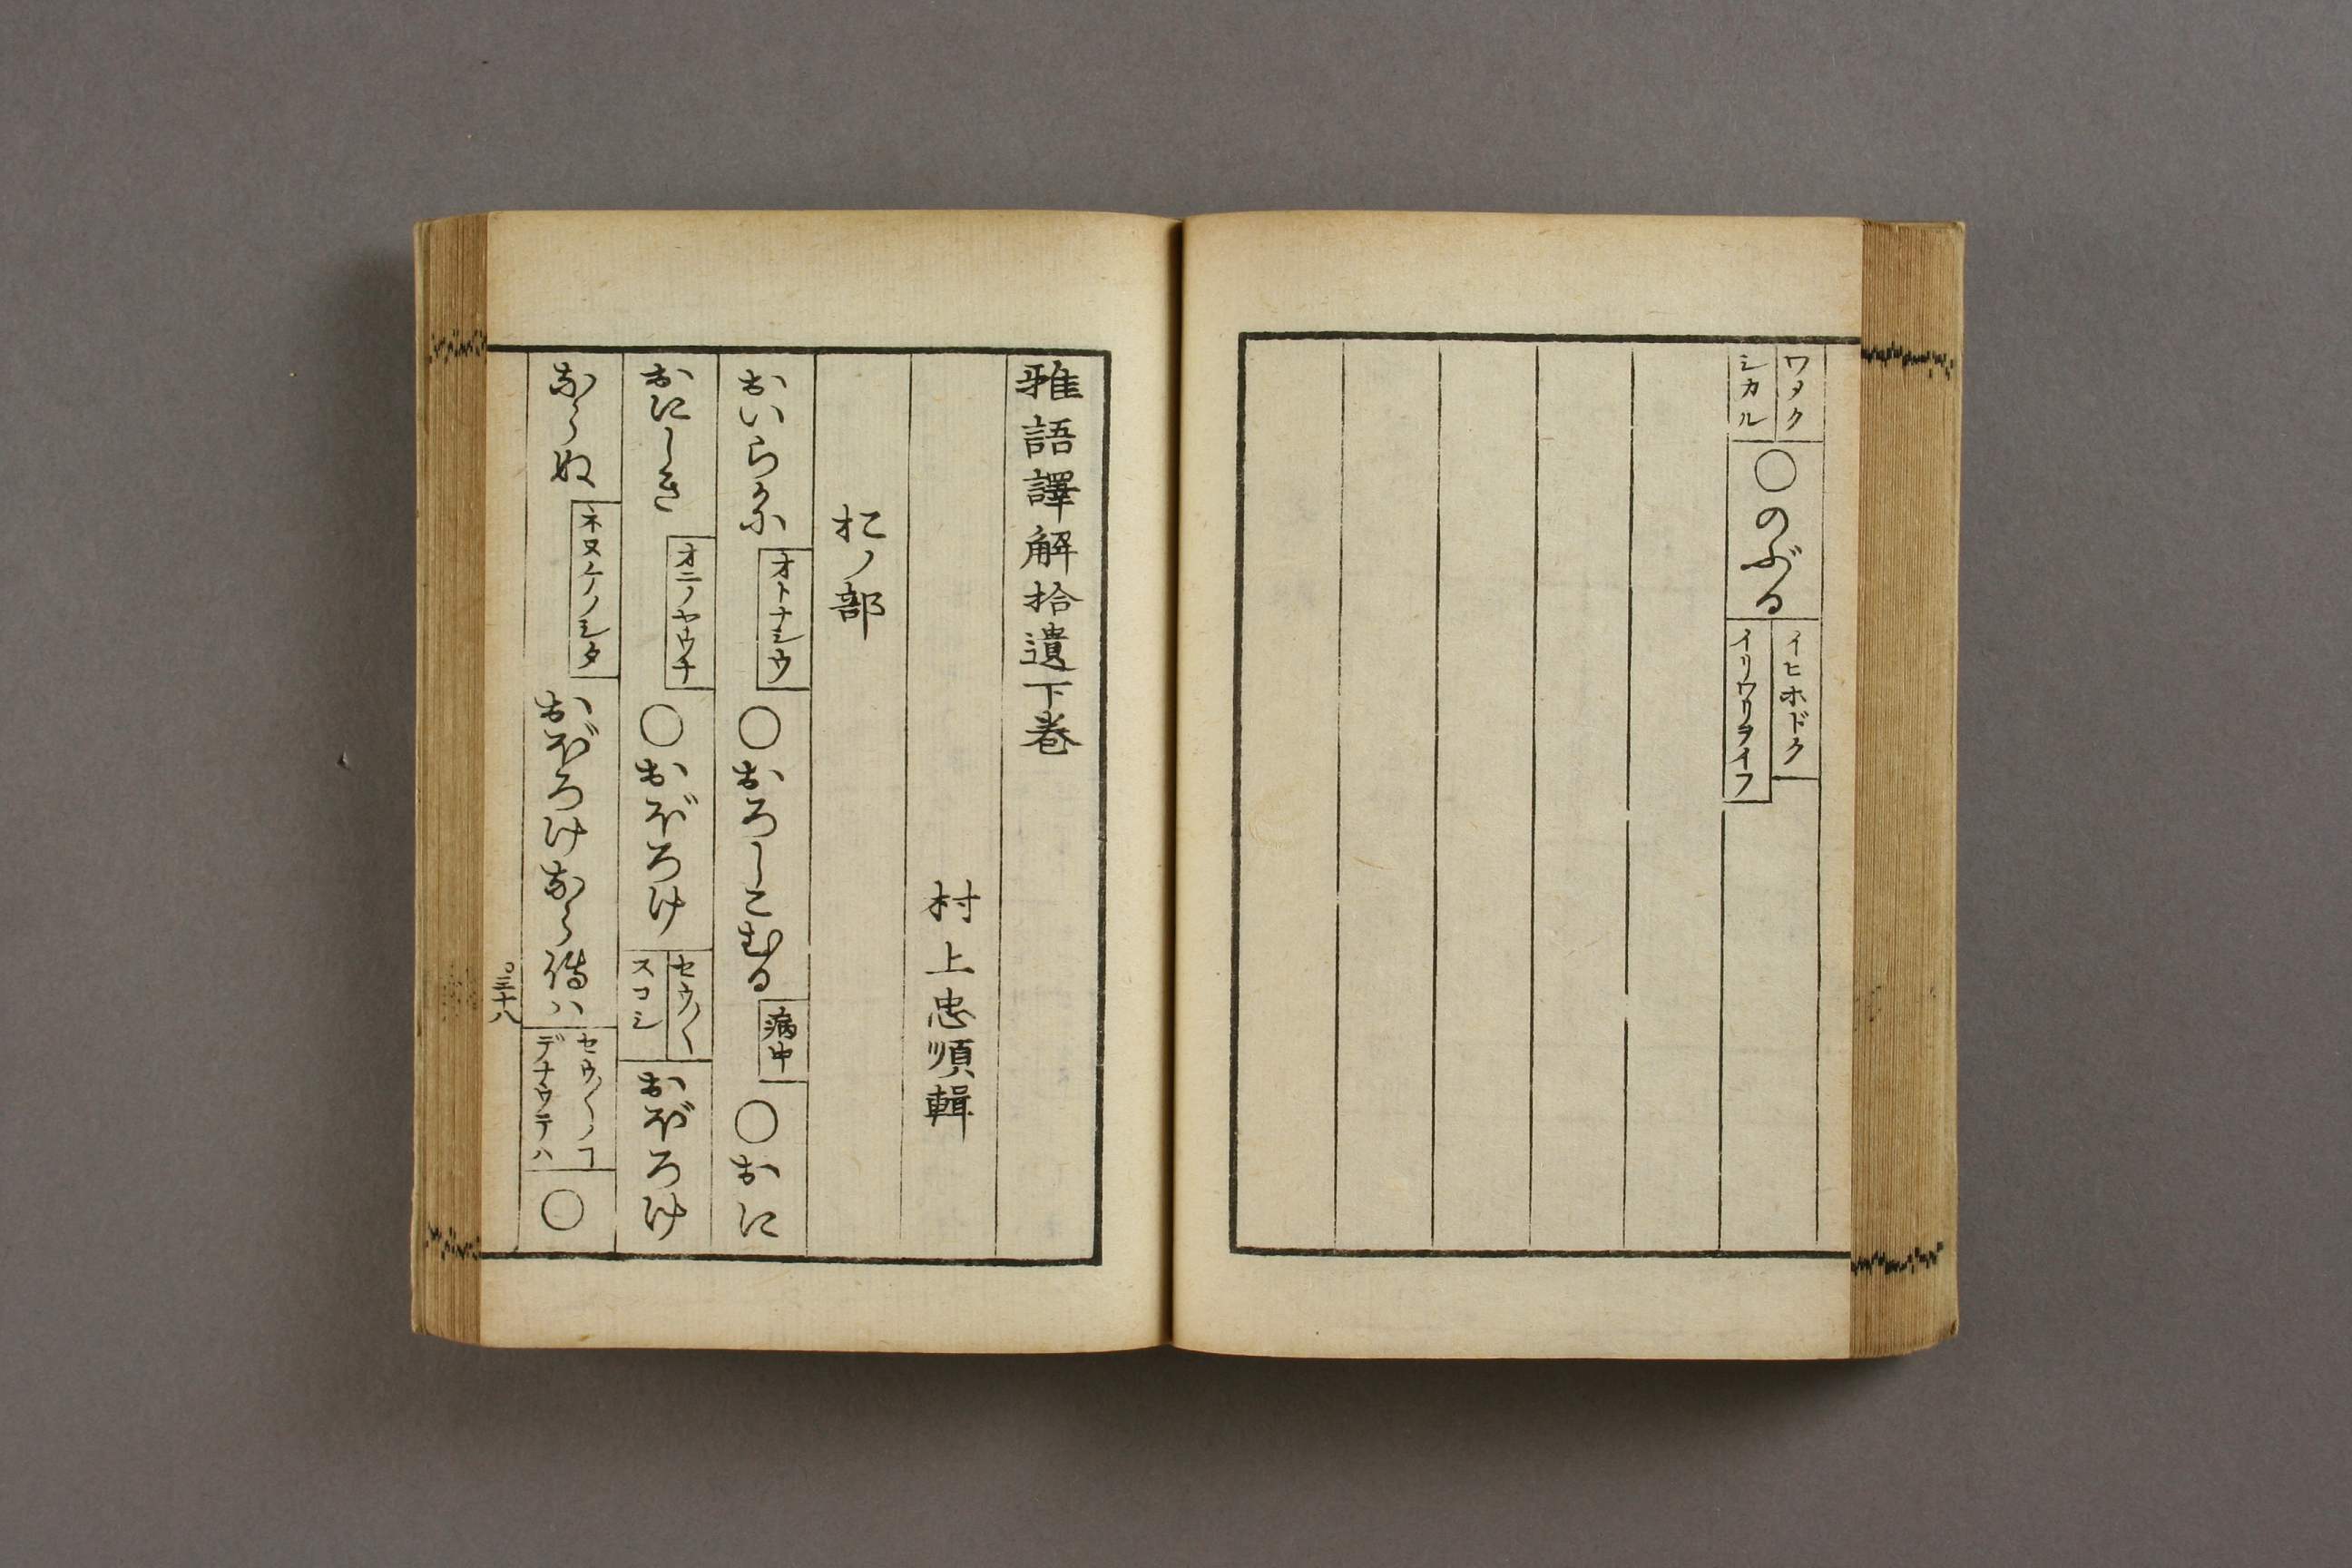 ワメク
シカル
○のぶる
イヒホドク
イリワリヲイフ
雅語譯解拾遺下巻
村上忠順輯
扵ノ部
おいらかに
オトナシウ
○おろしこむる
病中
○おに
おにしき
オニノヤウナ
○おぼろけ
セウ〳〵
スコシ
おぼろけ
ならぬ
ネヌケノシタ
おぼろけならでハ
セウ〳〵ノヿ
デナウテハ
○
○三十八